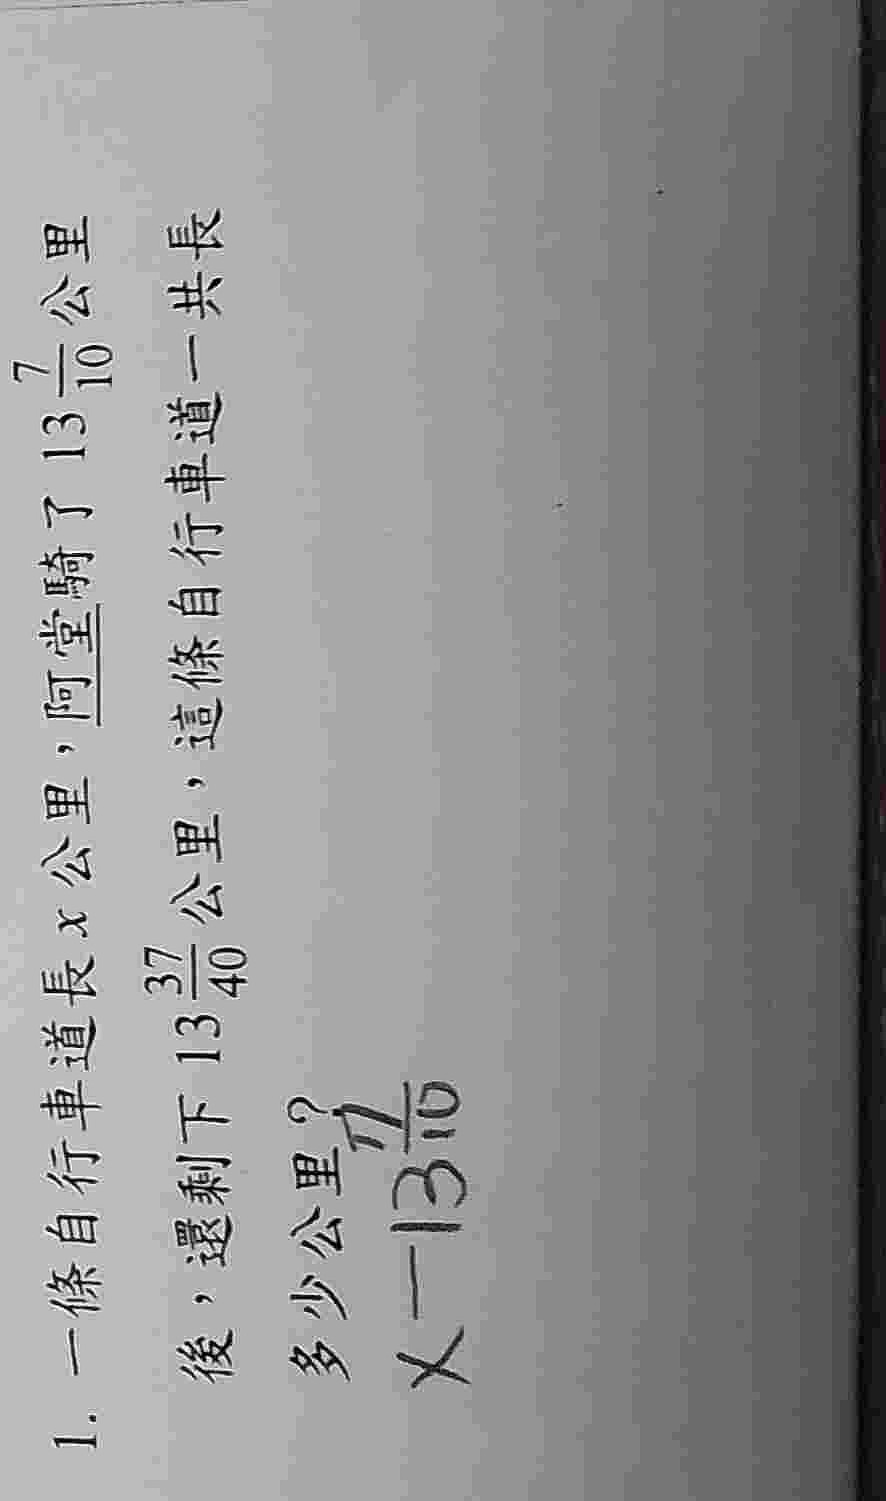 1. 一條自行車道長 x 公里，阿堂騎了 13 7/10 公里
後，還剩下 13 37/40 公里，這條自行車道一共長
多少公里？
x－13 7/10